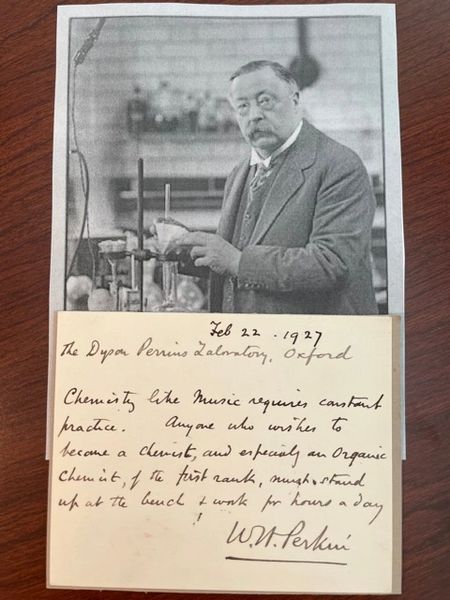 Feb 22. 1927
The Dyson Perrins Laboratory, Oxford
Chemistry like Music requires constant
practice. Anyone who wishes to
become a chemist, and especially an Organic
Chemist, of the first rank, must stand
up at the bench & work for hours a day
!
W.H. Perkin